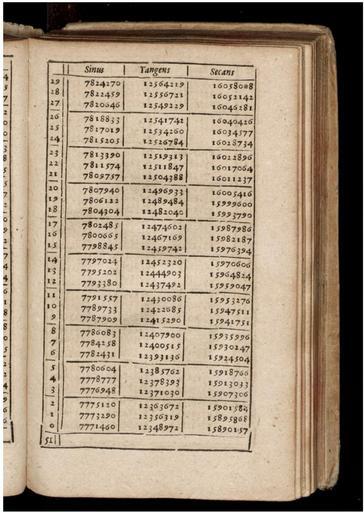 Sinus Tangens Secans
29 7824270 12564219 16058008
28 7822459 12556721 16052142
27 7820646 12549229 16046281
26 7818833 12541742 16040426
25 7817019 12534260 16034577
24 7815205 12526784 16028734
23 7813390 12519313 16022896
22 7811574 12511847 16017064
21 7809757 12504388 16011237
20 7807940 12496933 16005416
19 7806122 12489484 15999600
18 7804304 12482040 15993790
17 7802485 12474602 15987986
16 7800665 12467169 15982187
15 7798845 12459742 15976394
14 7797024 12452320 15970606
13 7795202 12444903 15964824
12 7793380 12437492 15959047
11 7791557 12430086 15953276
10 7789733 12422685 15947511
9 7787909 12415290 15941751
8 7786083 12407900 15935996
7 7784258 12400515 15930247
6 7782431 12393136 15924504
5 7780604 12385762 15918766
4 7778777 12378393 15913033
3 7776948 12371030 15907306
2 7775120 12363672 15901584
1 7773290 12356319 15895868
0 7771460 12348972 15890157
51